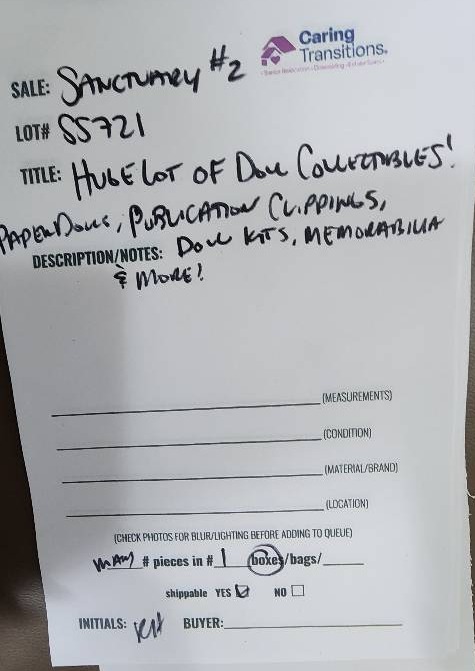 Caring
Transitions.
SALE: SANCTUARY #2
LOT# SS721
TITLE: HUGE LOT OF DOLL COLLECTIBLES!
PAPER DOLLS, PUBLICATION CLIPPINGS,
DESCRIPTION/NOTES: DOLL KITS, MEMORABILIA
& MORE!
(MEASUREMENTS)
(CONDITION)
(MATERIAL/BRAND)
(LOCATION)
(CHECK PHOTOS FOR BLUR/LIGHTING BEFORE ADDING TO QUEUE)
MANY # pieces in # 1 boxes/bags/
shippable YES NO
INITIALS: BUYER: